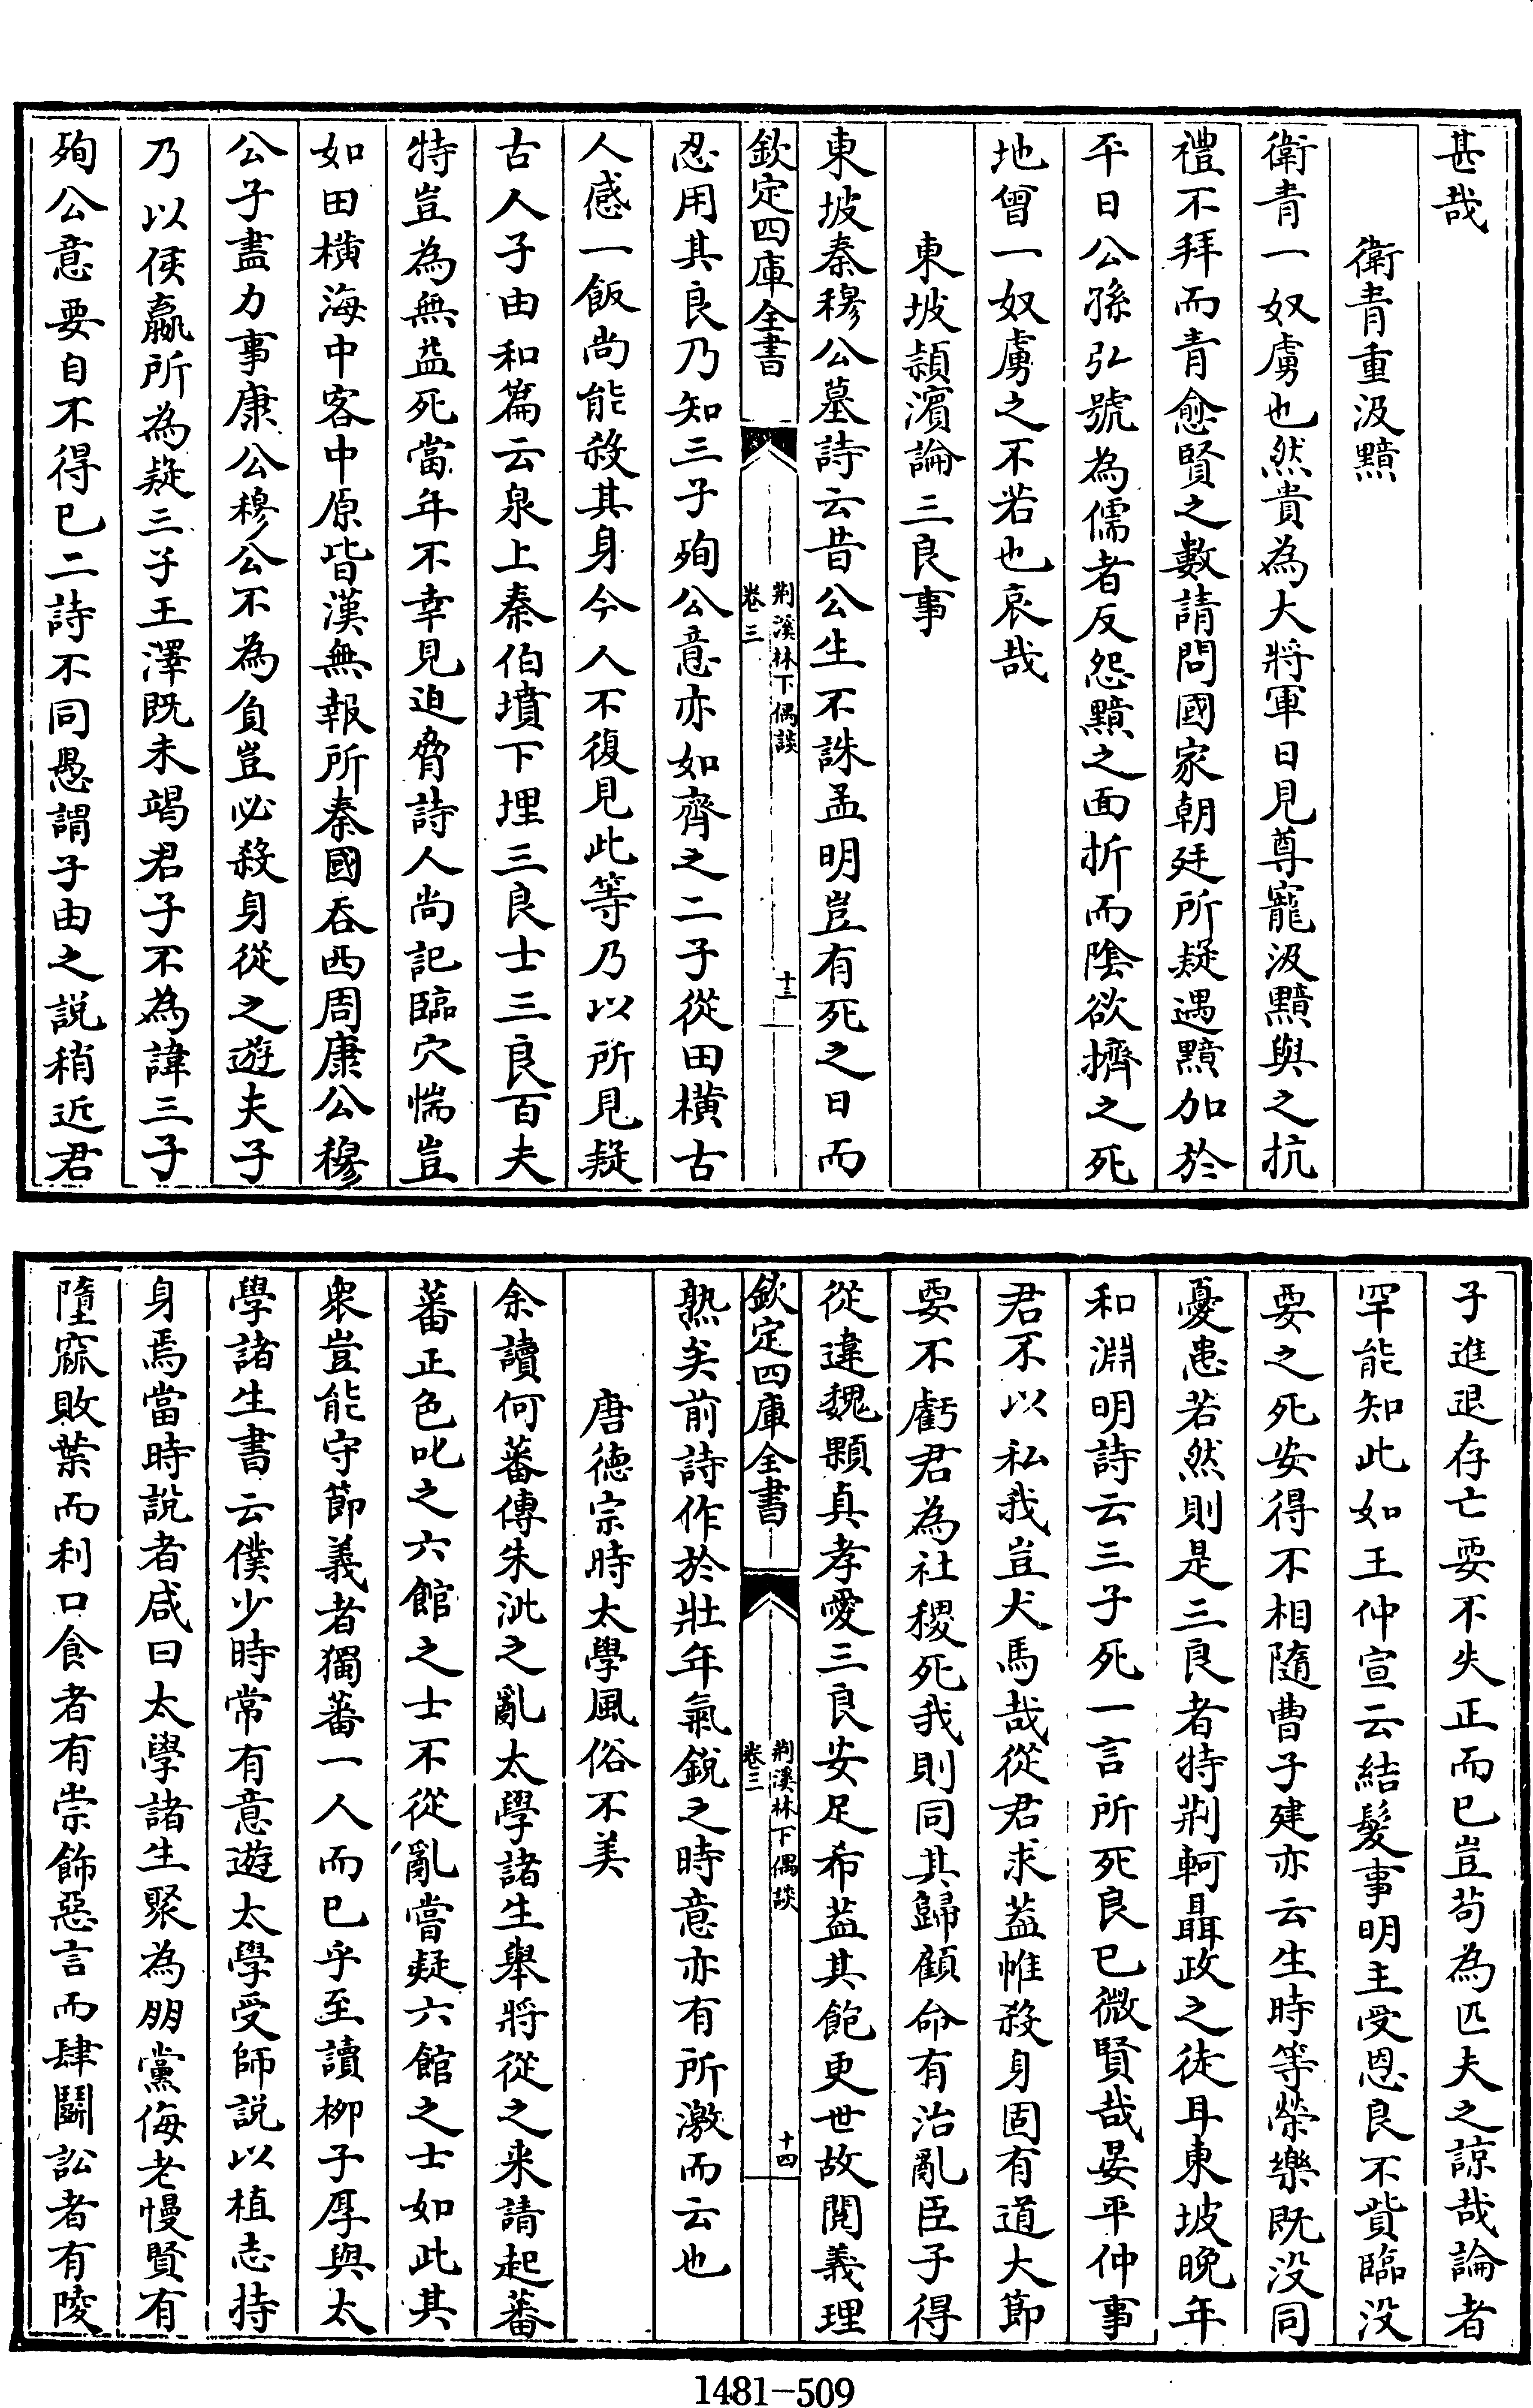 甚哉
衛青重汲黯
衛青一奴虜也然貴為大將軍日見尊寵汲黯與之抗
禮不拜而青愈賢之數請問國家朝廷所疑遇黯加於
平日公孫弘號為儒者反怨黯之面折而陰欲擠之死
地曾一奴虜之不若也哀哉
東坡潁濱論三良事
東坡秦穆公墓詩云昔公生不誅孟明豈有死之日而
欽定四庫全書
荆溪林下偶談
卷三
十三
忍用其良乃知三子殉公意亦如齊之二子從田橫古
人感一飯尚能殺其身今人不復見此等乃以所見疑
古人子由和篇云泉上秦伯墳下埋三良士三良百夫
特豈為無益死當年不幸見迫脅詩人尚記臨穴惴豈
如田橫海中客中原皆漢無報所秦國吞西周康公穆
公子盡力事康公穆公不為負豈必殺身從之遊夫子
乃以侯嬴所為疑三子王澤既未竭君子不為諱三子
殉公意要自不得已二詩不同愚謂子由之説稍近君
子進退存亡要不失正而已豈茍為匹夫之諒哉論者
罕能知此如王仲宣云結髮事明主受恩良不貲臨没
要之死安得不相隨曹子建亦云生時等榮樂既没同
憂患若然則是三良者特荆軻聶政之徒耳東坡晚年
和淵明詩云三子死一言所死良已微賢哉晏平仲事
君不以私我豈犬馬哉從君求葢惟殺身固有道大節
要不虧君為社稷死我則同其歸顧命有治亂臣子得
從違魏顆真孝愛三良安足希葢其飽更世故閲義理
欽定四庫全書
荆溪林下偶談
卷三
十四
熟矣前詩作於壯年氣鋭之時意亦有所激而云也
唐德宗時太學風俗不美
余讀何蕃傳朱泚之亂太學諸生舉將從之来請起蕃
蕃正色叱之六館之士不從亂嘗疑六館之士如此其
衆豈能守節義者獨蕃一人而已乎至讀栁子厚與太
學諸生書云僕少時常有意遊太學受師説以植志持
身焉當時説者咸曰太學諸生聚為朋黨侮老慢賢有
墮窳敗業而利口食者有崇飾惡言而肆鬭訟者有陵
1481-509